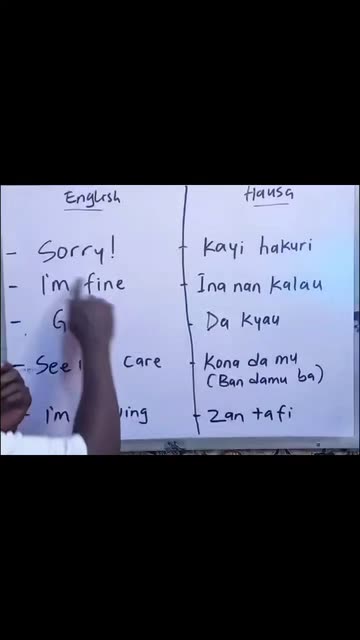 English Hausa
- Sorry! - Kayi hakuri
- I'm fine - Ina nan kalau
- - Da kyau
- See care - Kona da mu
(Ban damu ba)
- I'm - Zan tafi